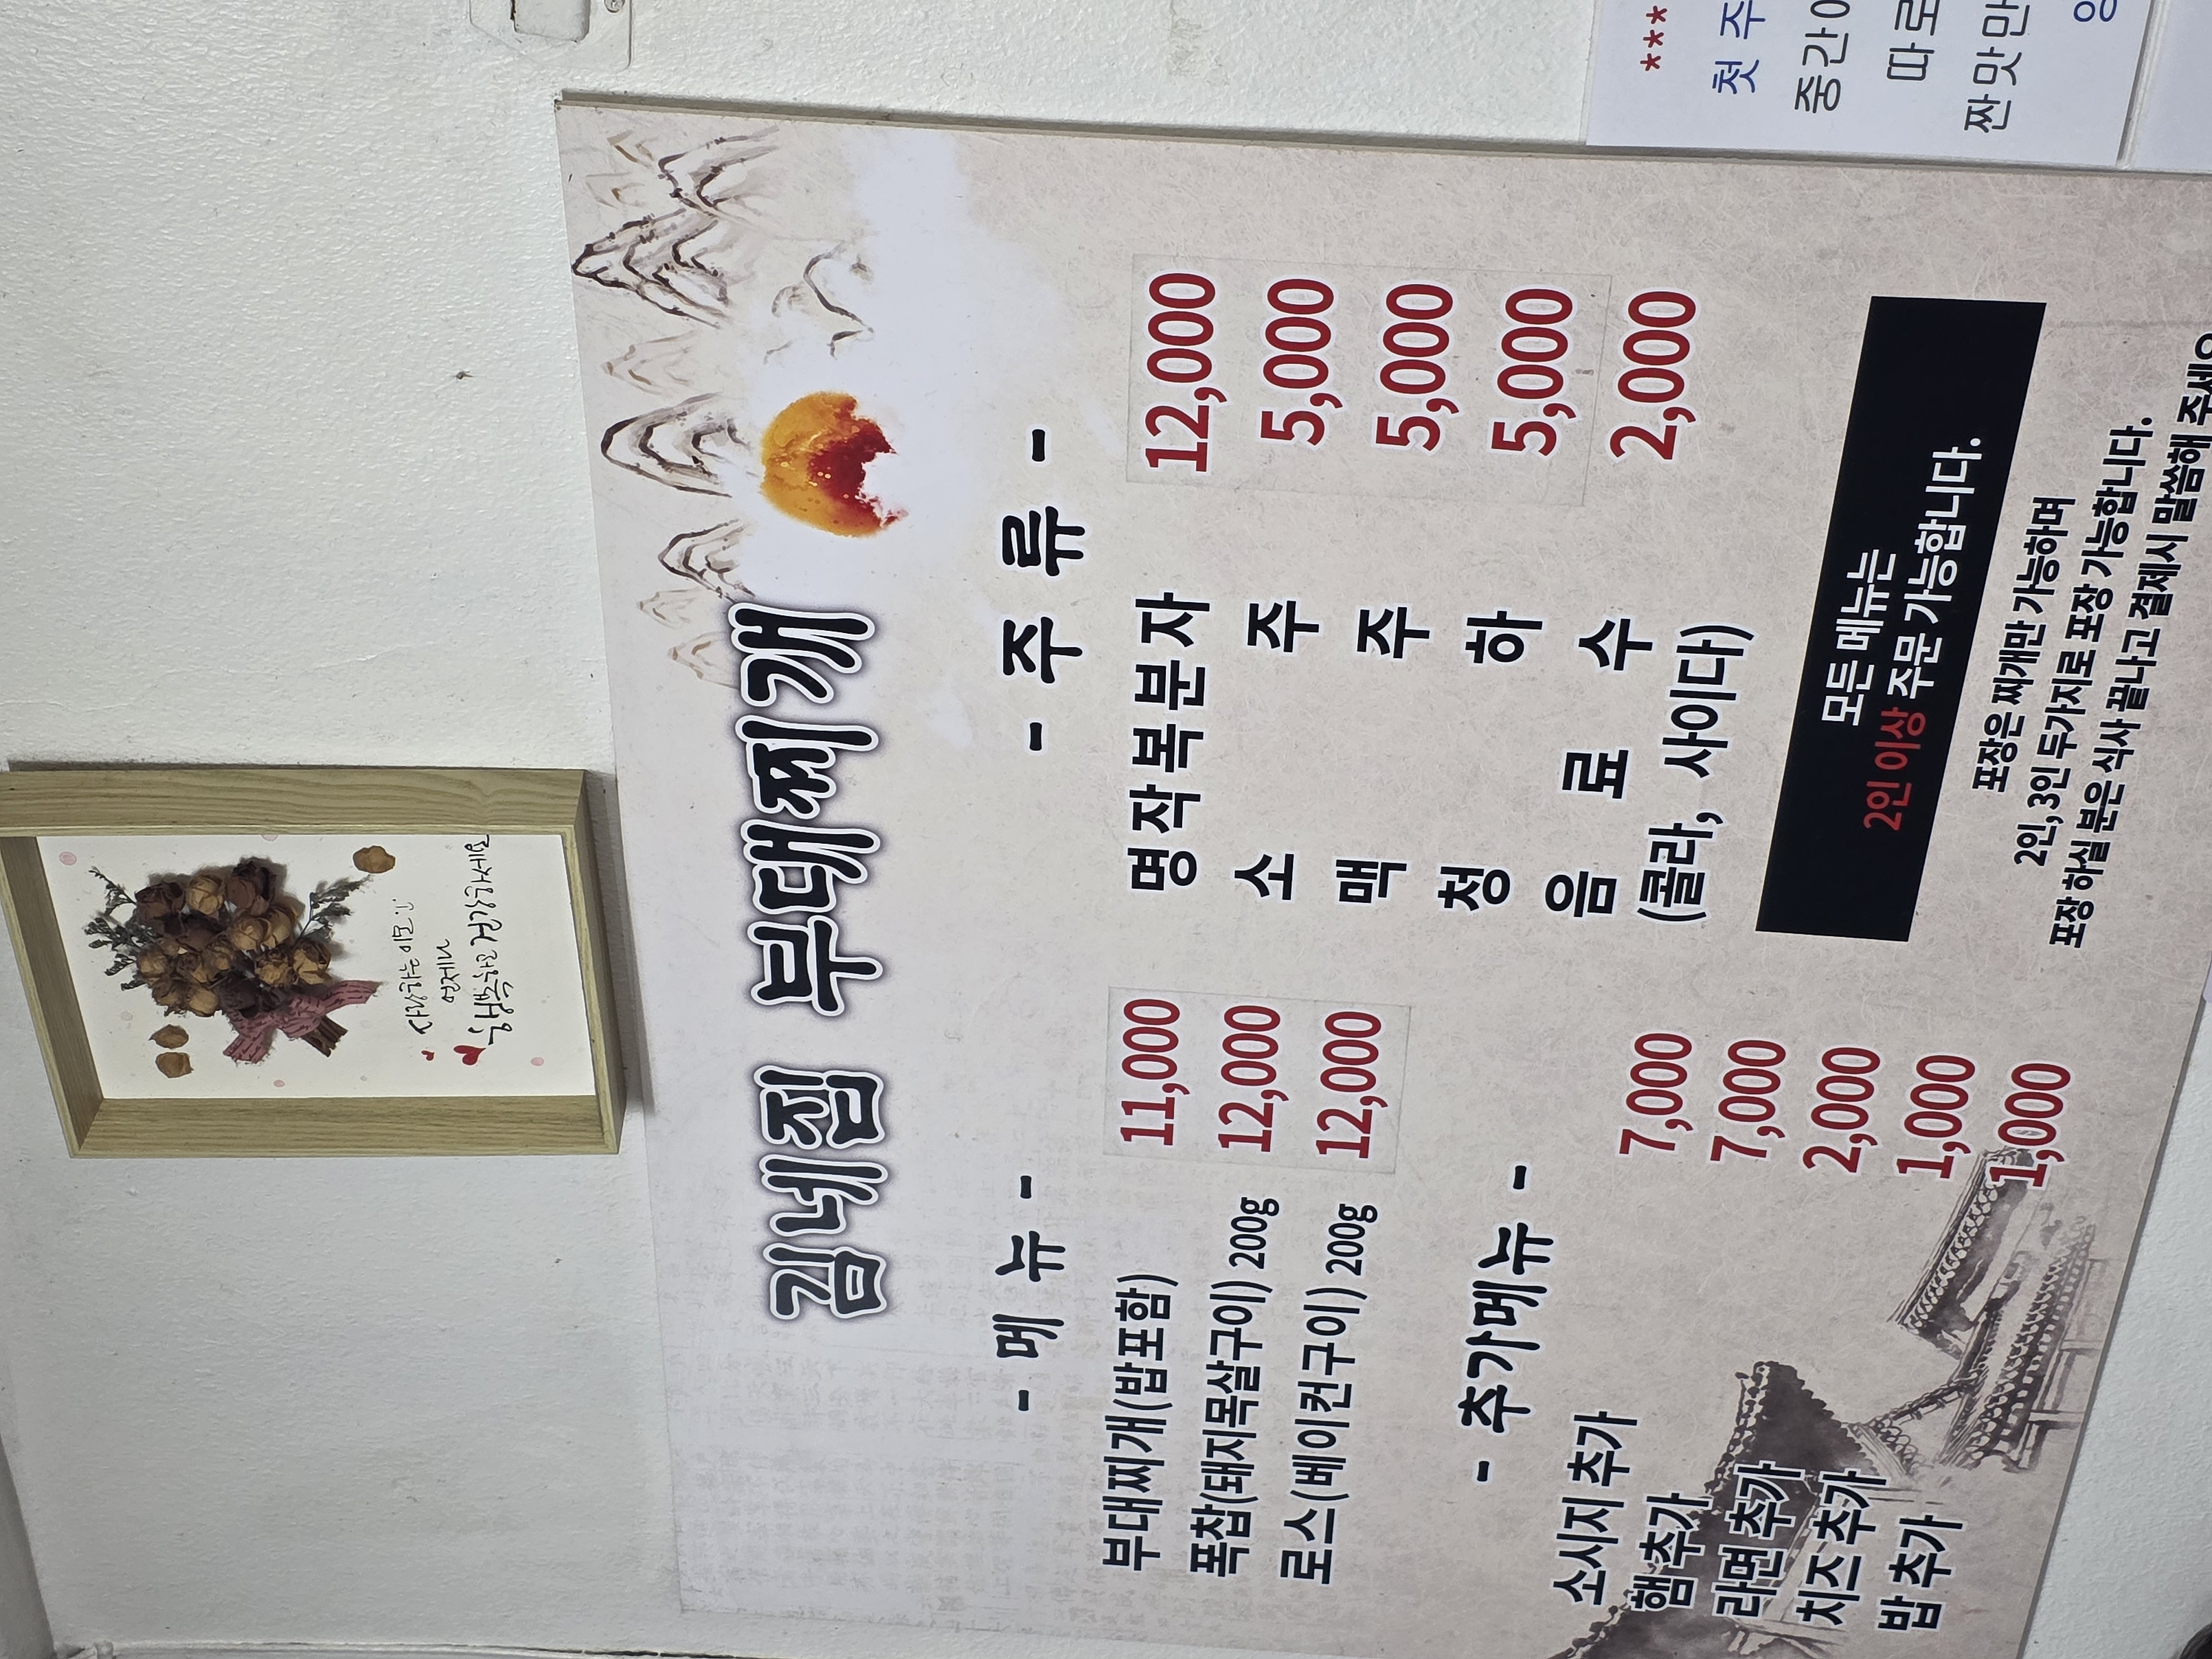 사랑하는 이모 :)
언제나
행복하고 건강하세요
김네집 부대찌개
- 메 뉴 -
부대찌개(밥포함) 11,000
폭찹(돼지목살구이) 200g 12,000
로스(베이컨구이) 200g 12,000
- 추가메뉴 -
소시지 추가 7,000
햄 추가 7,000
라면 추가 2,000
치즈 추가 1,000
밥 추가 1,000
- 주 류 -
명작복분자 12,000
소 주 5,000
맥 주 5,000
청 하 5,000
음 료 수 2,000
(콜라, 사이다)
모든 메뉴는
2인 이상 주문 가능합니다.
포장은 찌개만 가능하며
2인,3인 두가지로 포장 가능합니다.
포장 하실 분은 식사 끝나고 결제시 말씀해 주세요
***
첫 주
중간
따로
짠맛만